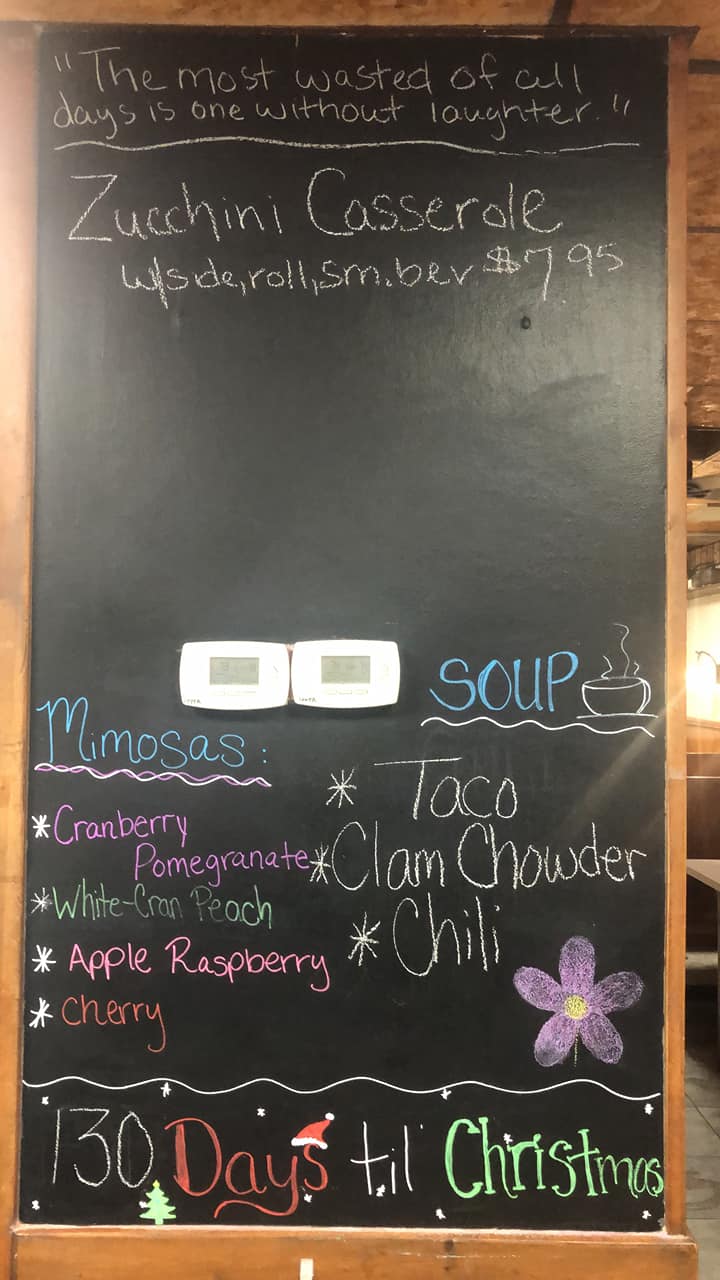 "The most wasted of all
days is one without laughter."
Zucchini Casserole
w/side, roll, sm. bev $7.95
SOUP
* Taco
* Clam Chowder
* Chili
Mimosas:
* Cranberry
Pomegranate
* White-Cran Peach
* Apple Raspberry
* Cherry
130 Days til' Christmas